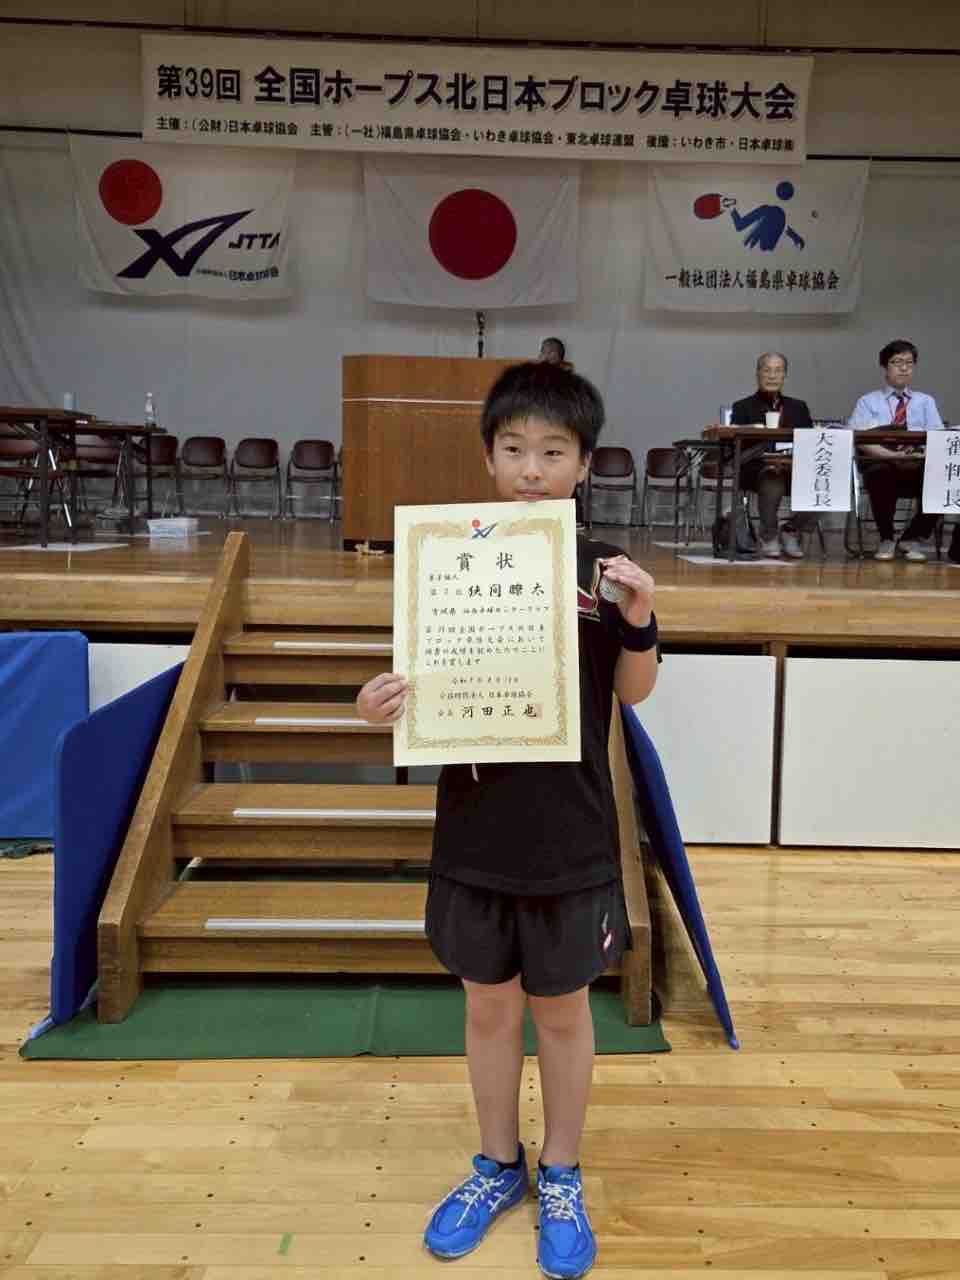 第39回 全国ホープス北日本ブロック卓球大会
主催：（公財）日本卓球協会 主管：（一社）福島県卓球協会・いわき卓球協会・東北卓球連盟 後援：いわき市・日本卓球㈱
JTTA
公益財団法人 日本卓球協会
一般社団法人福島県卓球協会
大会委員長
審判長
賞状
第2位 狭間瞭太
宮城県
第39回全国ホープス北日本
ブロック卓球大会において
頭書の成績を収めたのでここに
これを賞します
公益財団法人 日本卓球協会
会長 河田正也